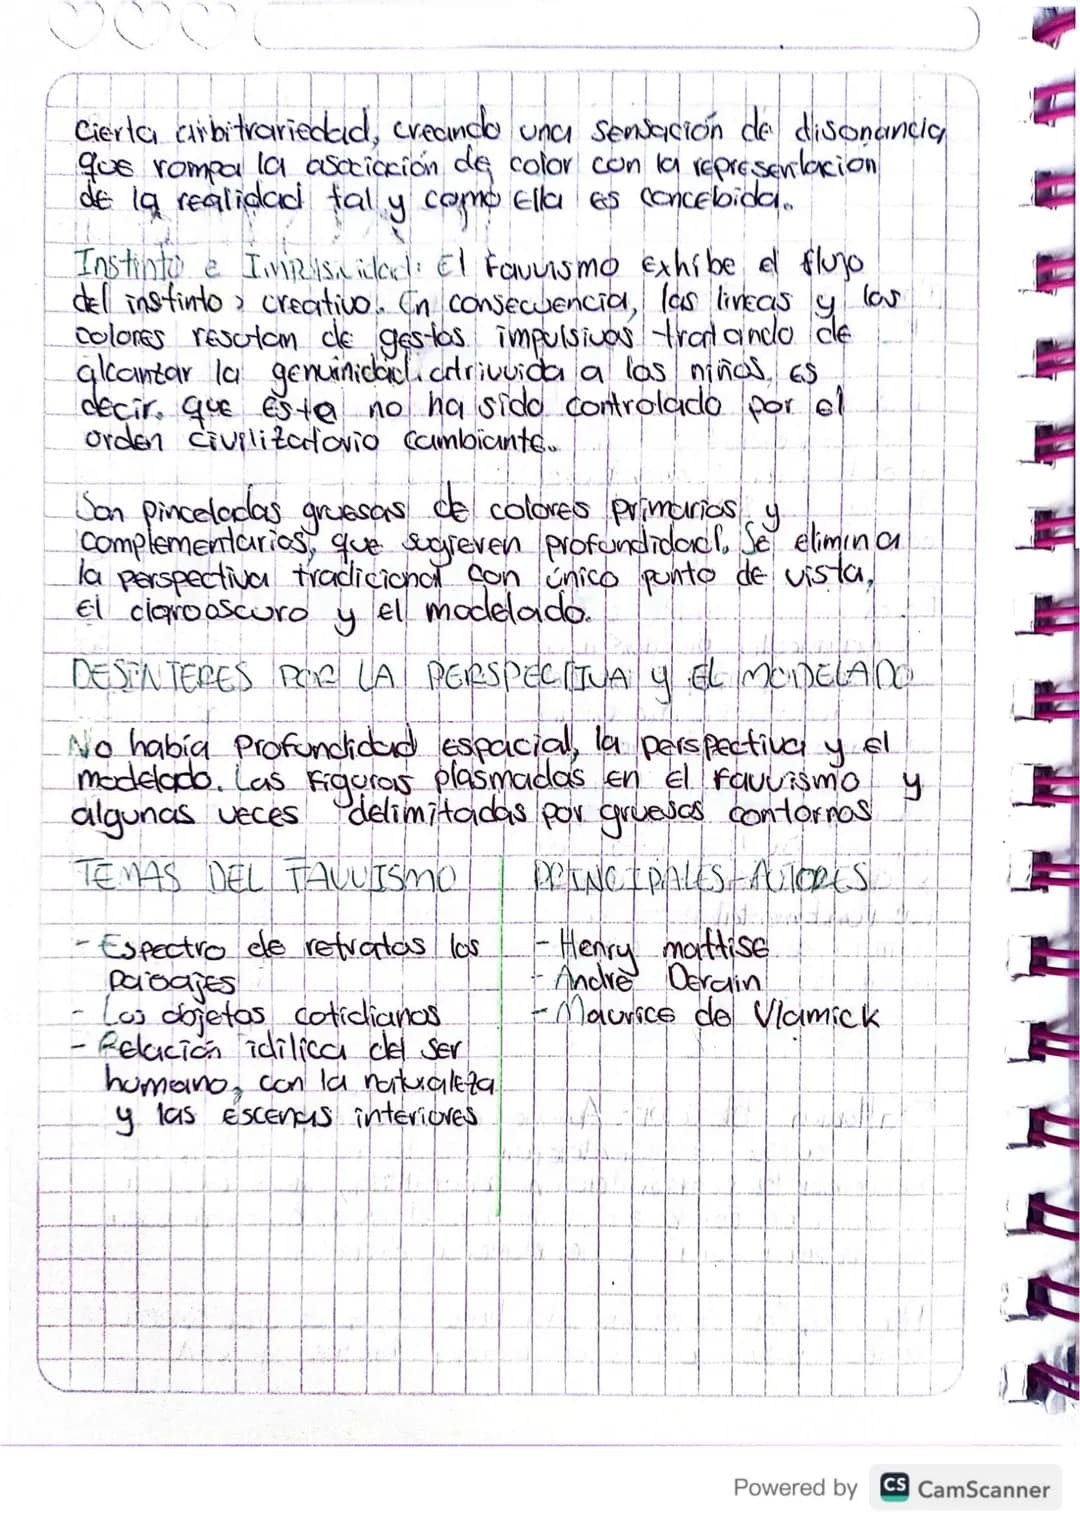 cierta arbitrariedad, creando una sensación de disonancia
que rompa la asociación de color con la representación
de la realidad tal y como Ella es concebida.
Instinto e Impulsividad: El Fauvismo Exhibe el flujo
del instinto creativo. En consecuencia, las lineas y los
colores resultan de gestos impulsivos tratando de
alcantar la genuinidad atrivuida a los niños, es
decir, que ésta no ha sido controlado por el
orden civilizatovio cambiante.
Son pinceladas gruesas de colores primarios y
complementarios, que sugieven profundidad. Se elimina
la perspectiva tradicional con único punto de vista,
El clarooscuro y el modelado.
DESINTERES POR LA PERSPECTIVA y EL MODELADO
No había Profundidad espacial, la perspectiva y el
modelado. Las Figuras plasmadas en El Fauvismo y
algunas veces delimitadas por gruesos contornos
TEMAS DEL FAUVISMO
- Espectro de retratos los
paisajes
- Los objetos cotidianos
- Relación idílica del ser
humano, con la naturaleza
y las escenas interiores
PRINCIPALES-AUTORES
- Henry mattise
- Andrè Derain
- Maurice de Vlamick
Powered by CS CamScanner